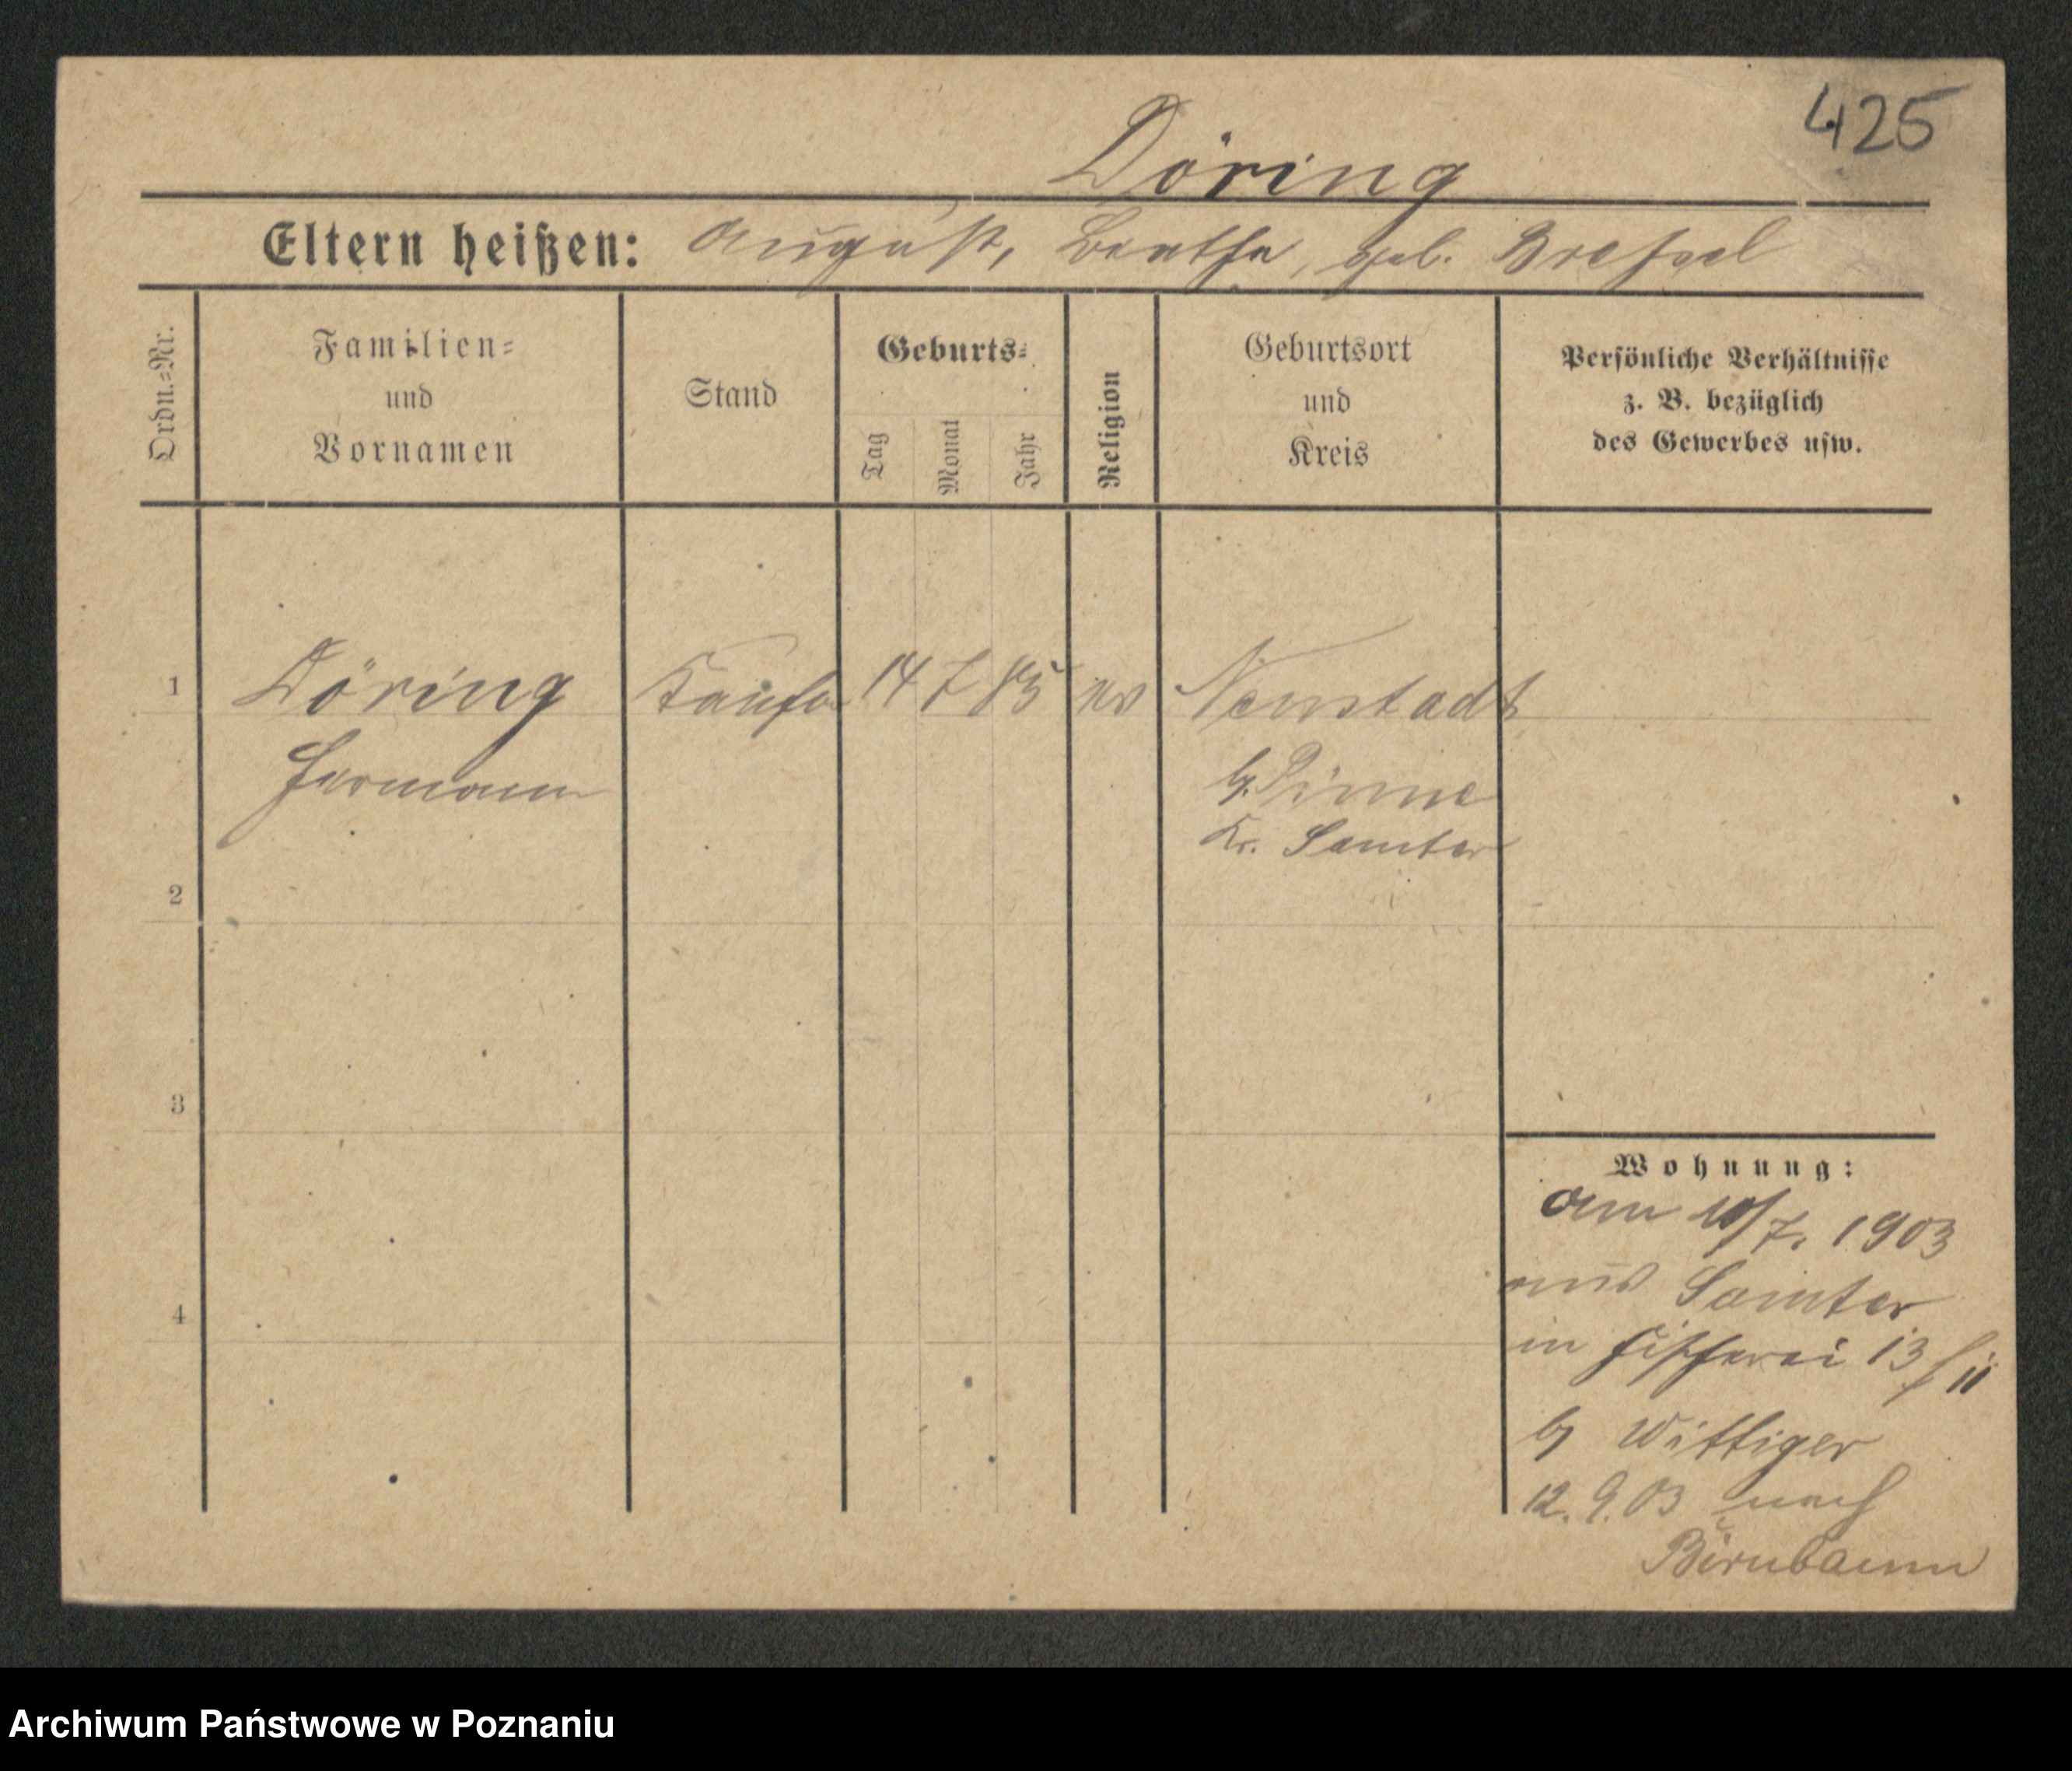 425
Döring
Eltern heißen: August, Bertha, geb.
Ordn.-Nr.
Familien-
und
Vornamen
Stand
Geburts-
Tag
Monat
Jahr
Religion
Geburtsort
und
Kreis
Persönliche Verhältnisse
z. B. bezüglich
des Gewerbes usw.
1 Döring 14 7 85 ev Neustadt
Hermann b. Pinne
Kr. Samter
2
3
4
Wohnung:
Am 10/7. 1903
aus Samter
in Fischerei 13
b Wittiger
12. 9. 03 nach
Birnbaum
Archiwum Państwowe w Poznaniu